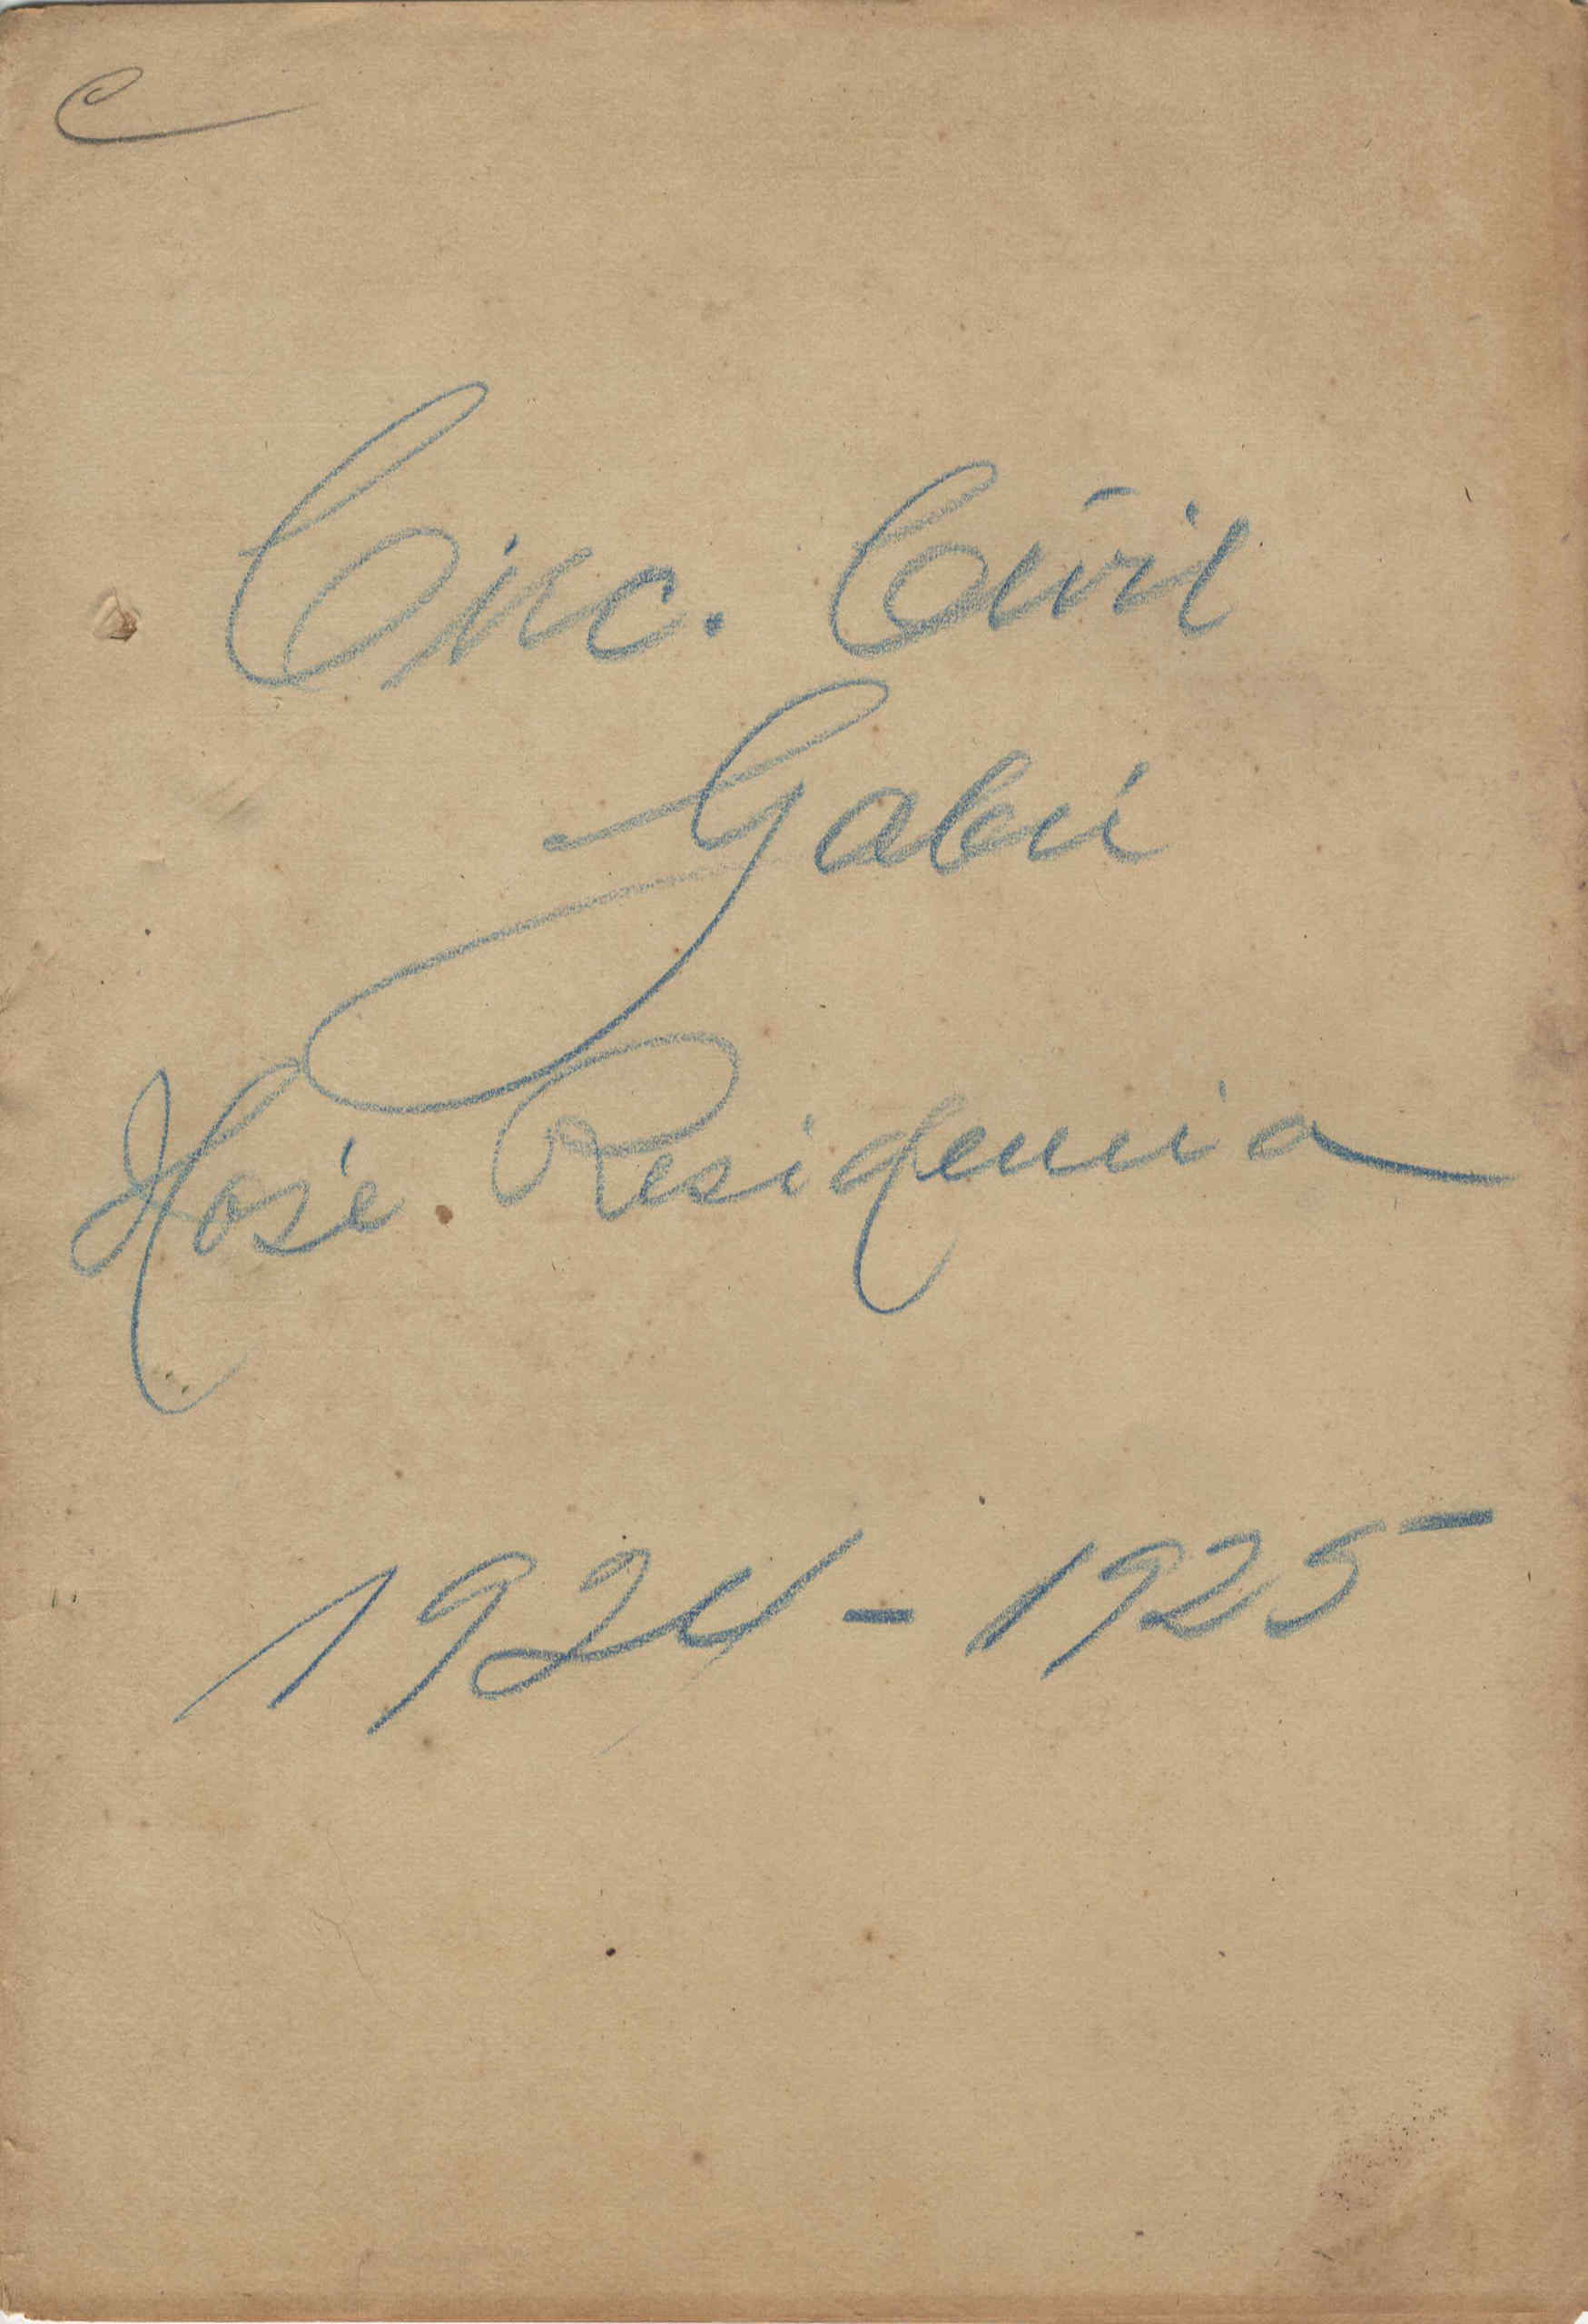 C
Circ. Civil
Gabú
José Residencia
1924 - 1925